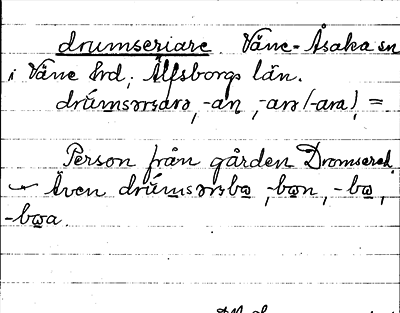 drumseriare. Väne-Åsaka sn
i Väne hrd; Älfsborgs län.
drúmsərsarə, -an, -arə (-ara), =
Person från gården Dromsered.
Även drúmsərsbo, -bon, -bo,
-boa.